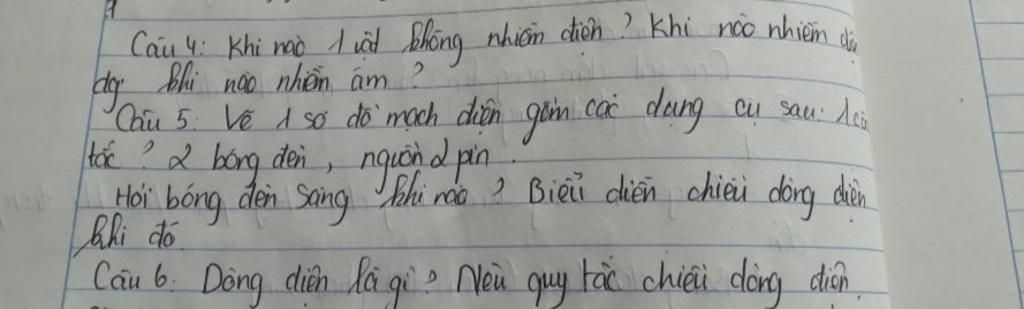 Câu 4: Khi nào 1 vật không nhiễm điện? Khi nào nhiễm điện
dg khi nào nhiễm âm?
Câu 5: Vẽ 1 sơ đồ mạch điện gồm các dụng cụ sau: 1 công
tắc, 2 bóng đèn, nguồn 2 pin.
Hỏi bóng đèn sáng khi nào? Biểu diễn chiều dòng điện
khi đó.
Câu 6: Dòng điện là gì? Nêu quy tắc chiều dòng điện.